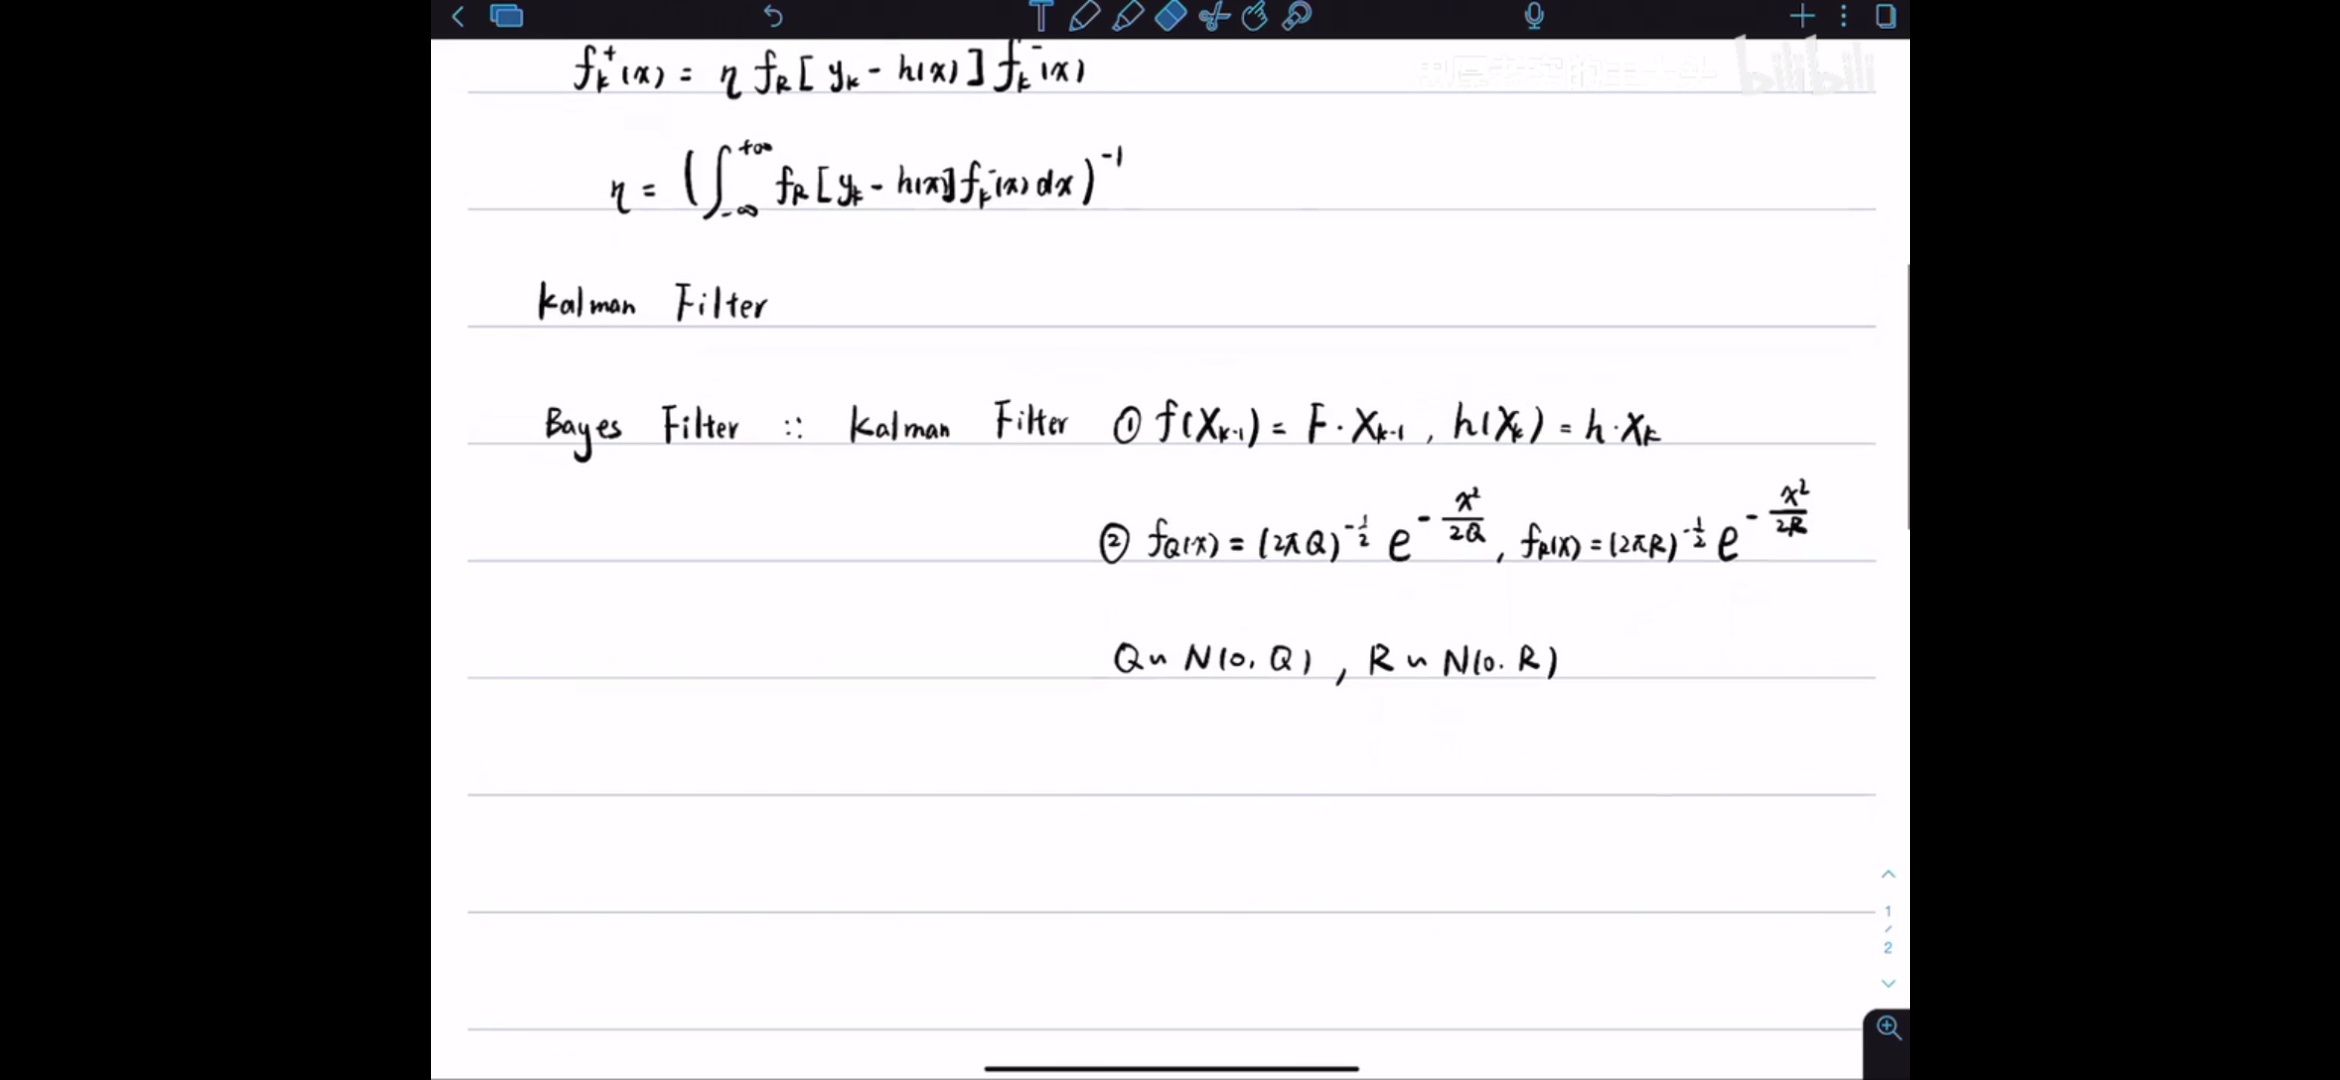 f_k^+(x) = η f_R[y_k - h(x)] f_k^-(x)
η = (∫_{-∞}^{+∞} f_R[y_k - h(x)] f_k^-(x) dx)^{-1}
bilibili
Kalman Filter
Bayes Filter :: Kalman Filter ① f(X_{k-1}) = F · X_{k-1}, h(X_k) = h · X_k
② f_Q(x) = (2πQ)^{-1/2} e^{-x²/2Q}, f_R(x) = (2πR)^{-1/2} e^{-x²/2R}
Q ~ N(0, Q), R ~ N(0. R)
1
/
2